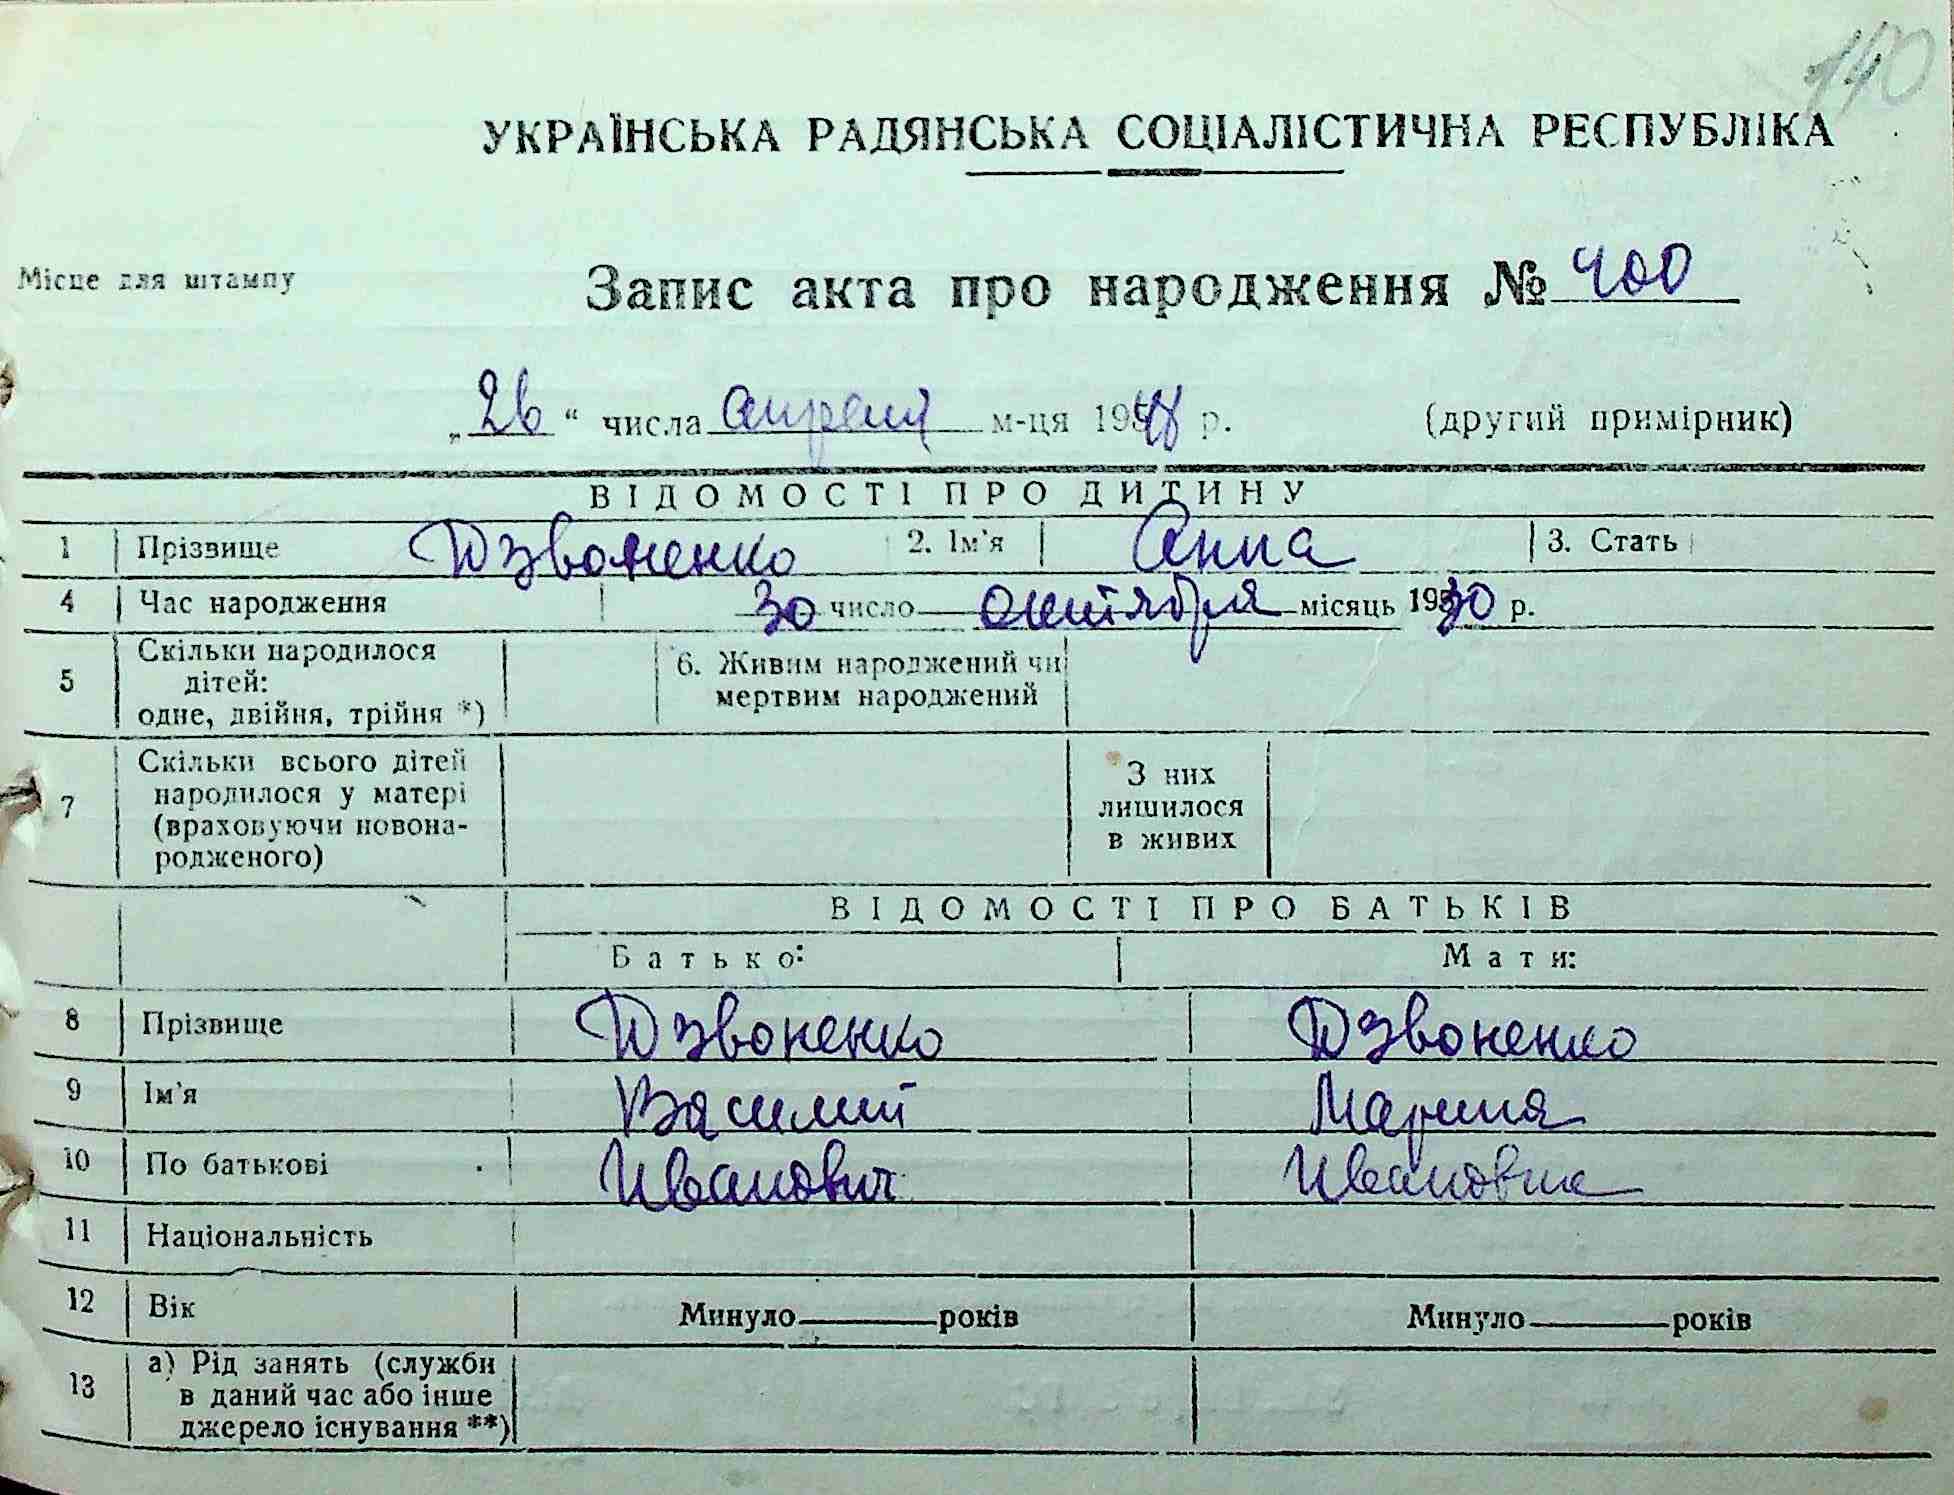 140
УКРАЇНСЬКА РАДЯНСЬКА СОЦІАЛІСТИЧНА РЕСПУБЛІКА
Місце для штампу
Запис акта про народження № 400
„26“ числа апреля м-ця 1948 р. (другий примірник)
ВІДОМОСТІ ПРО ДИТИНУ
1 Прізвище Дзвоненко 2. Ім'я Анна 3. Стать
4 Час народження 30 число октября місяць 1930 р.
5 Скільки народилося дітей: одне, двійня, трійня *) 6. Живим народжений чи мертвим народжений
7 Скільки всього дітей народилося у матері (враховуючи новонародженого) З них лишилося в живих
ВІДОМОСТІ ПРО БАТЬКІВ
Батько: Мати:
8 Прізвище Дзвоненко Дзвоненко
9 Ім'я Василий Марина
10 По батькові Иванович Ивановна
11 Національність
12 Вік Минуло років Минуло років
13 а) Рід занять (служби в даний час або інше джерело існування **)